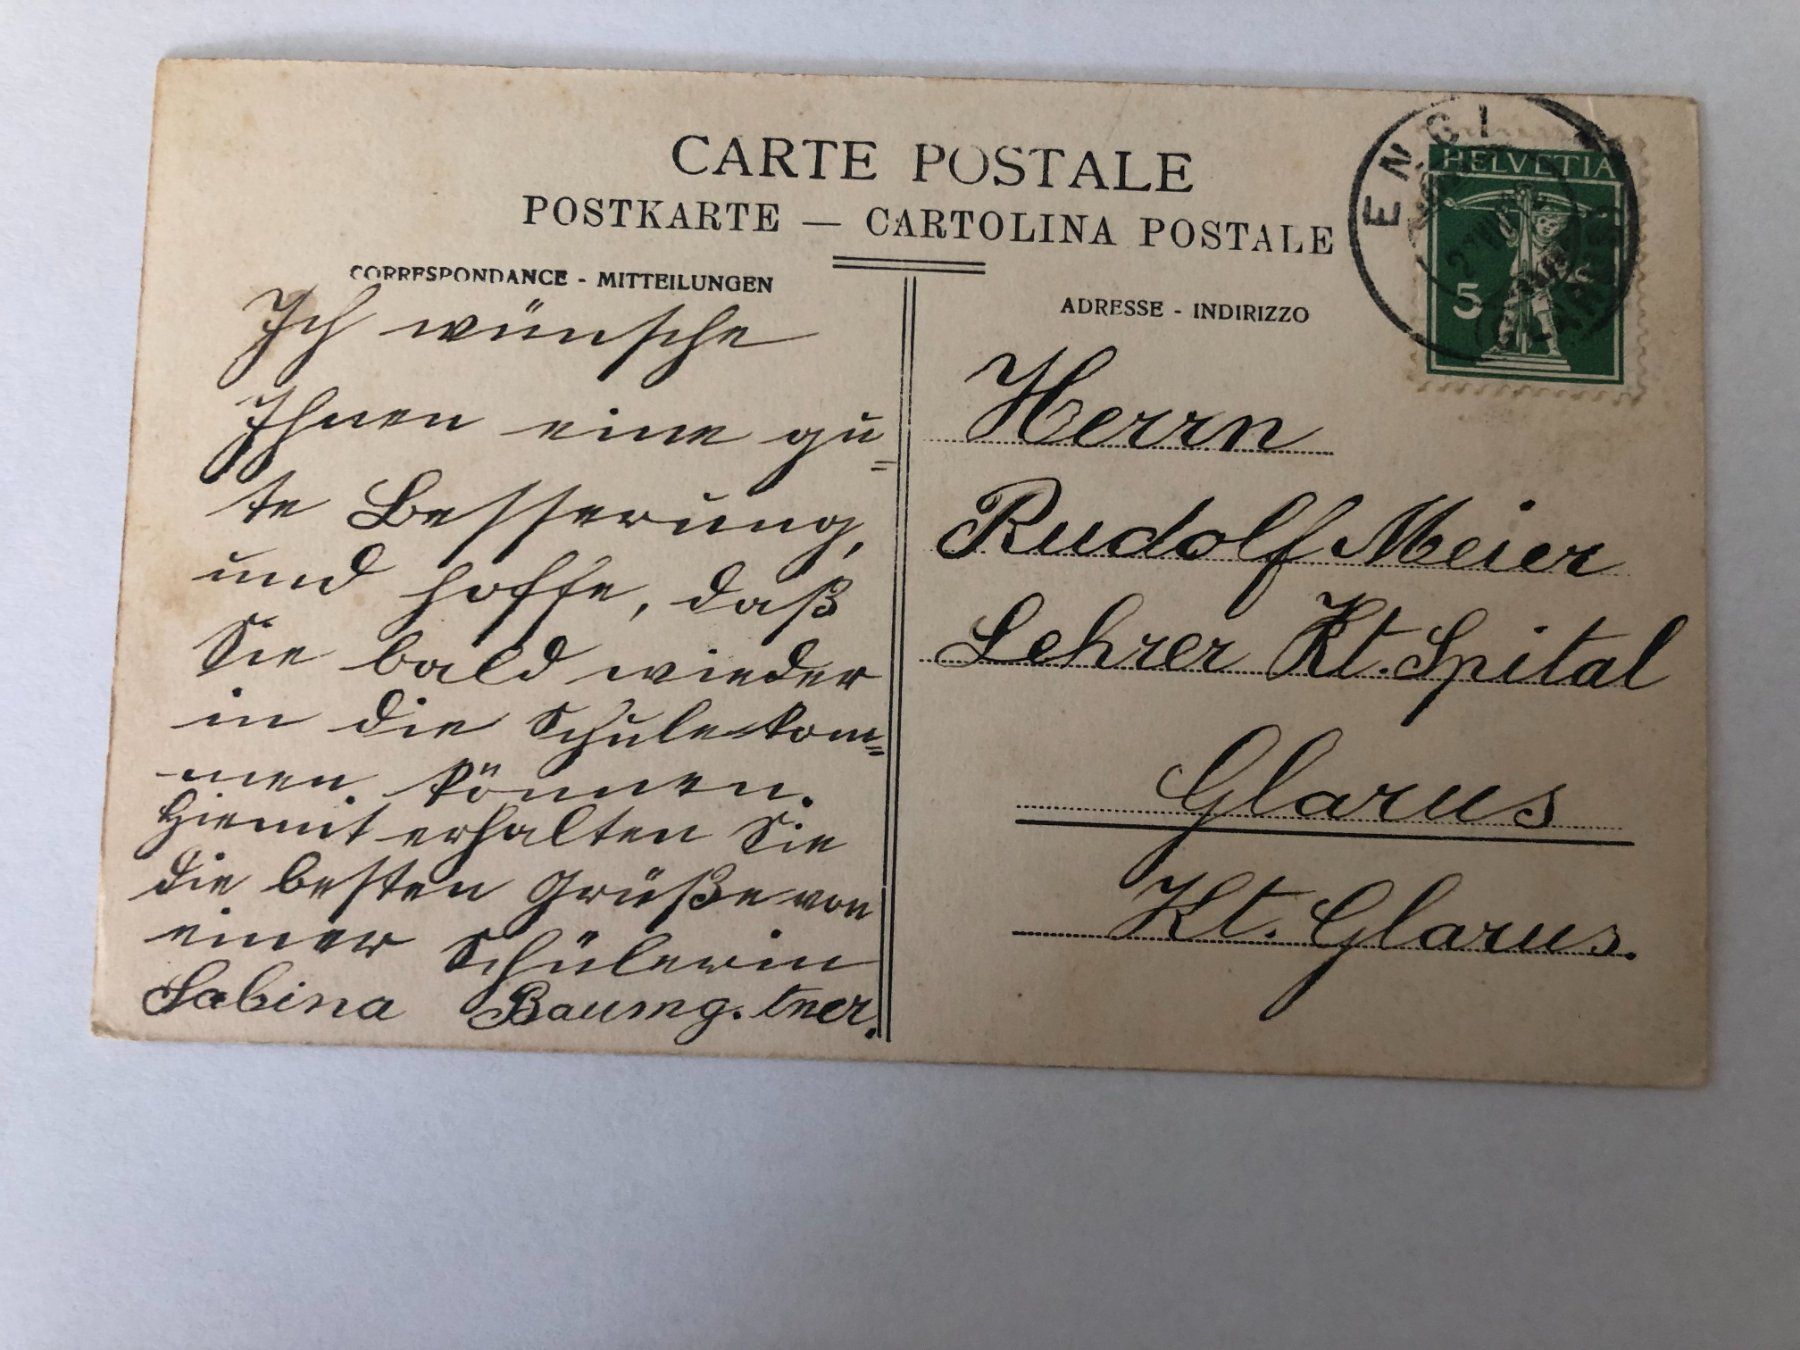 CARTE POSTALE
POSTKARTE — CARTOLINA POSTALE
CORRESPONDANCE - MITTEILUNGEN
Ich wünsche
Ihnen eine gu=
te Besserung,
und hoffe, daß
Sie bald wieder
in die Schule kom=
men können.
Hiemit erhalten Sie
die besten Grüße von
einer Schülerin
Sabina Baumg.tner.
ADRESSE - INDIRIZZO
Herrn
Rudolf Meier
Lehrer Kt. Spital
Glarus
Kt. Glarus.
ENGI
HELVETIA
5